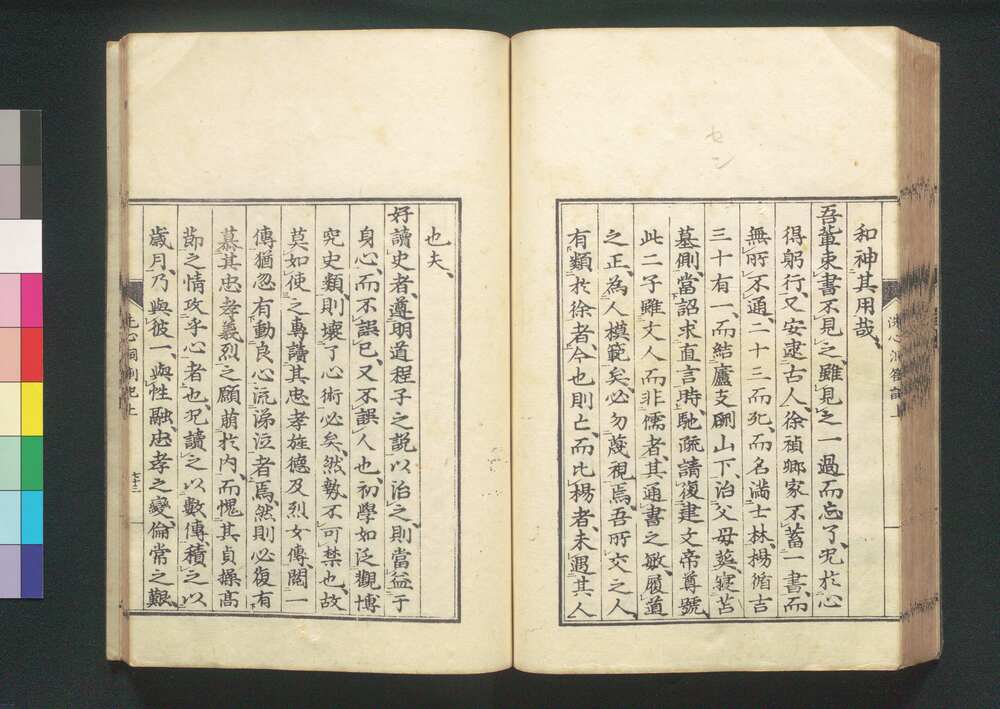 和神其用哉、
吾輩束書不見之、雖見之一過而忘了、況於心
得躬行、又安逮古人、徐禎卿家不蓄一書、而
無所不通、二十三而死、而名滿士林、楊循吉
三十有一、而結廬支硎山下、治父母葬、寢苫
墓側、當詔求直言時、馳疏請復建文帝尊號、
此二子雖文人而非儒者、其通書之敏、履道
之正、為人模範矣、必勿蔑視焉、吾所交之人、
有類於徐者、今也則亡、而比楊者、未遇其人
也夫、
好讀史者、遵明道程子之說以治之、則當益于
身心、而不誤己、又不誤人也、初學如泛觀博
究史類、則壞了心術必矣、然勢不可禁也、故
莫如使之專讀其忠孝旌德及烈女傳、閱一
傳猶忽有動良心流涕泣者焉、然則必復有
慕其忠孝義烈之願萌於內、而愧其貞操高
節之情攻乎心者也、況讀之以數傳、積之以
歲月、乃與彼一、與性融、忠孝之變、倫常之艱、
洗心洞劄記上